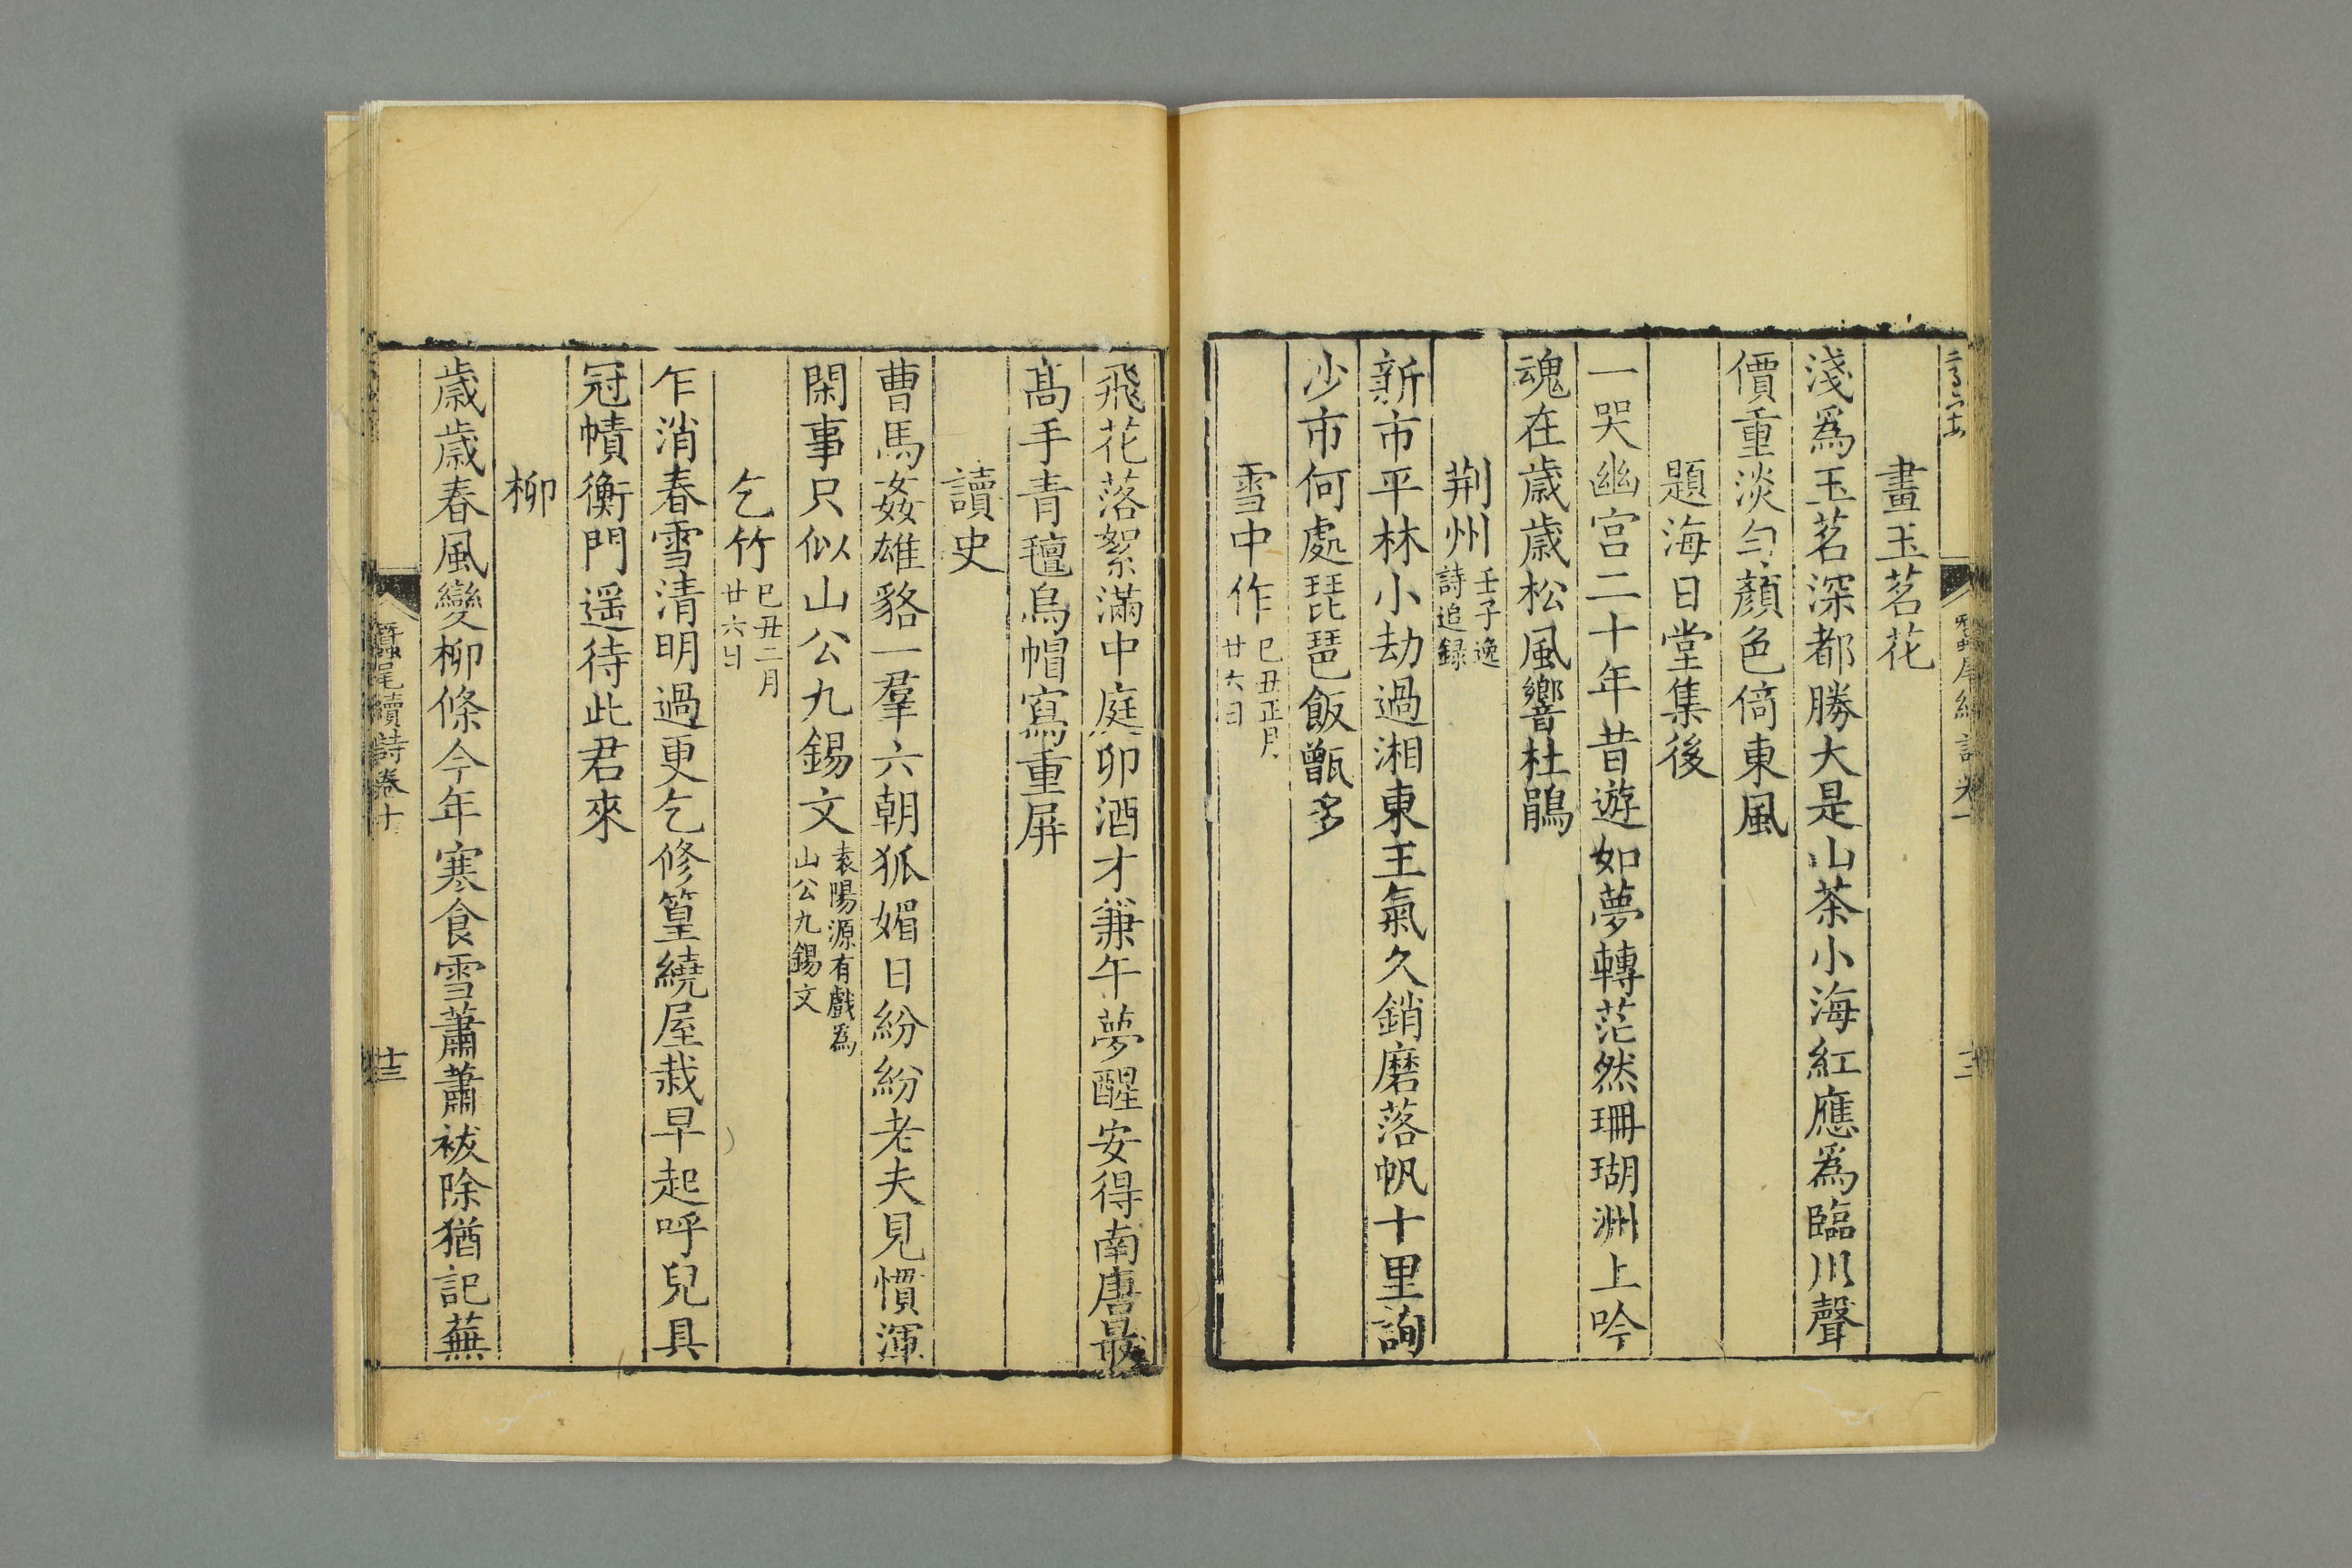 畫玉茗花
淺爲玉茗深都勝大是山茶小海紅應爲臨川聲
價重淡勻顏色倚東風
題海日堂集後
一哭幽宮二十年昔遊如夢轉茫然珊瑚洲上吟
魂在歲歲松風響杜鵑
荆州壬子逸詩追録
新市平林小劫過湘東王氣久銷磨落帆十里詢
沙市何處琵琶飯甑多
雪中作己丑正月廿六日
飛花落絮滿中庭卯酒才兼午夢醒安得南唐最
高手青氊烏帽寫重屏
讀史
曹馬姦雄貉一羣六朝狐媚日紛紛老夫見慣渾
閑事只似山公九錫文袁陽源有戲爲山公九錫文
乞竹己丑二月廿六日
乍消春雪清明過更乞修篁繞屋栽早起呼兒具
冠幘衡門遥待此君來
柳
歲歲春風變柳條今年寒食雪蕭蕭袚除猶記蕪
蠶尾續詩卷十
廿三